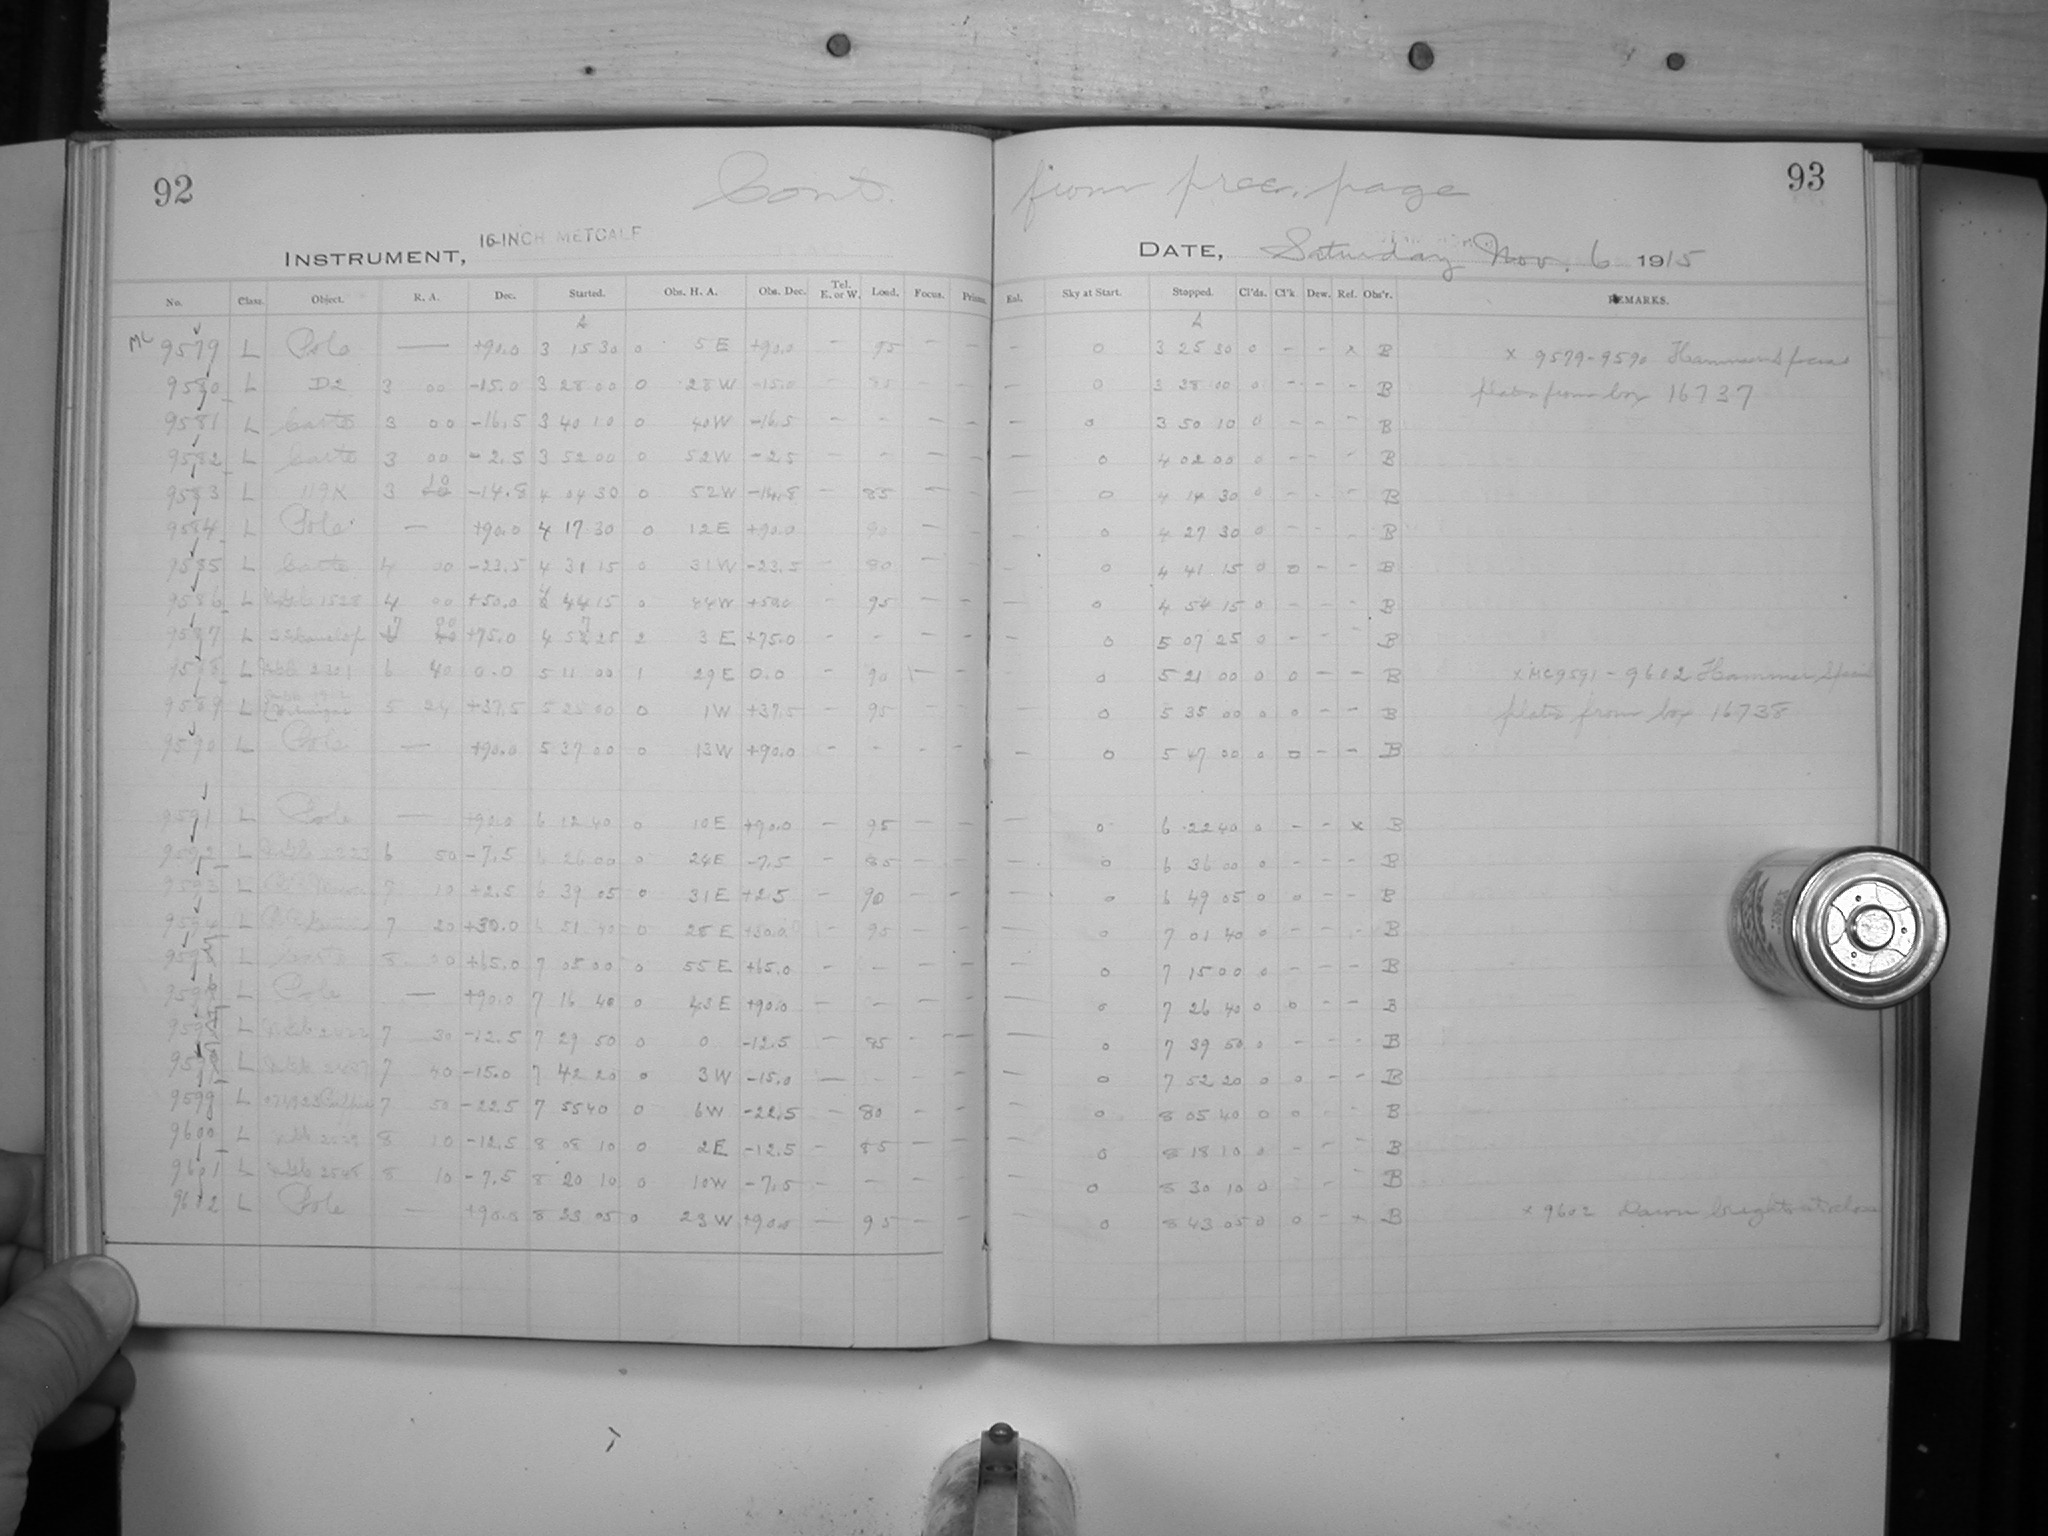 92
Cont.
from prec. page
93
INSTRUMENT, 16-INCH METCALF
DATE, Saturday Nov. 6 1915
No. Class. Object. R. A. Dec. Started. Obs. H. A. Obs. Dec. Tel. E. or W. Load. Focus. Prisms. Eal. Sky at Start. Stopped. Cl'ds. Cl'k. Dew. Ref. Obs'r. REMARKS.
MC 9579 L Pole — +90.0 3 15 30 0 5 E +90.0 - 95 - - - 0 3 25 30 0 - - x B x 9579-9590 Hammer
9580 L D2 3 00 -15.0 3 28 00 0 28 W -15.0 - 85 - - - 0 3 38 00 0 - - - B plates from box 16737
9581 L Carte 3 00 -16.5 3 40 10 0 40 W -16.5 - - - - - 0 3 50 10 0 - - - B
9582 L Carte 3 00 -2.5 3 52 00 0 52 W -2.5 - - - - - 0 4 02 00 0 - - - B
9583 L 119K 3 10 -14.8 4 04 30 0 52 W -14.8 - 85 - - - 0 4 14 30 0 - - - B
9584 L Pole — +90.0 4 17 30 0 12 E +90.0 90 - - - 0 4 27 30 0 - - - B
9585 L Carte 4 00 -23.5 4 31 15 0 31 W -23.5 - 80 - - - 0 4 41 15 0 0 - - B
9586 L 1528 4 00 +50.0 4 44 15 0 44 W +50.0 - 95 - - - 0 4 54 15 0 - - - B
9587 L 7 00 +75.0 4 57 25 2 3 E +75.0 - - - - - 0 5 07 25 0 - - - B
9588 L 2301 6 40 0.0 5 11 00 1 29 E 0.0 - 90 - - - 0 5 21 00 0 0 - - B x MC9591-9602 Hammer
9589 L 5 24 +37.5 5 25 00 0 1 W +37.5 - 95 - - - 0 5 35 00 0 0 - - B plates from box 16738
9590 L Pole — +90.0 5 37 00 0 13 W +90.0 - - - - - 0 5 47 00 0 0 - - B
9591 L Pole — +90.0 6 12 40 0 10 E +90.0 - 95 - - - 0 6 22 40 0 - - x B
9592 L 6 50 -7.5 6 26 00 0 24 E -7.5 - 85 - - - 0 6 36 00 0 - - - B
9593 L 7 10 +2.5 6 39 05 0 31 E +2.5 - 90 - - - 0 6 49 05 0 0 - - B
9594 L 7 20 +30.0 6 51 40 0 28 E +30.0 - 95 - - - 0 7 01 40 0 - - - B
9595 L Carte 8 00 +65.0 7 05 00 0 55 E +65.0 - - - - - 0 7 15 00 0 - - - B
9596 L Pole — +90.0 7 16 40 0 43 E +90.0 - - - - - 0 7 26 40 0 0 - - B
9597 L 7 30 -12.5 7 29 50 0 0 -12.5 - 85 - - - 0 7 39 50 0 - - - B
9598 L 7 40 -15.0 7 42 20 0 3 W -15.0 - - - - - 0 7 52 20 0 0 - - B
9599 L 7 50 -22.5 7 55 40 0 6 W -22.5 - 80 - - - 0 8 05 40 0 0 - - B
9600 L 8 10 -12.5 8 08 10 0 2 E -12.5 - 85 - - - 0 8 18 10 0 - - - B
9601 L 8 10 -7.5 8 20 10 0 10 W -7.5 - - - - - 0 8 30 10 0 - - B
9602 L Pole — +90.0 8 33 05 0 23 W +90.0 - 95 - - - 0 8 43 05 0 0 - x B x 9602 Dawn bright at close